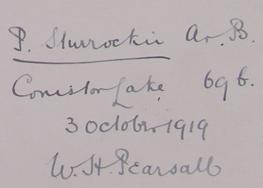 P. Sturrockii Ar. B.
Coniston Lake 69 b.
3 October 1919
W. H. Pearsall